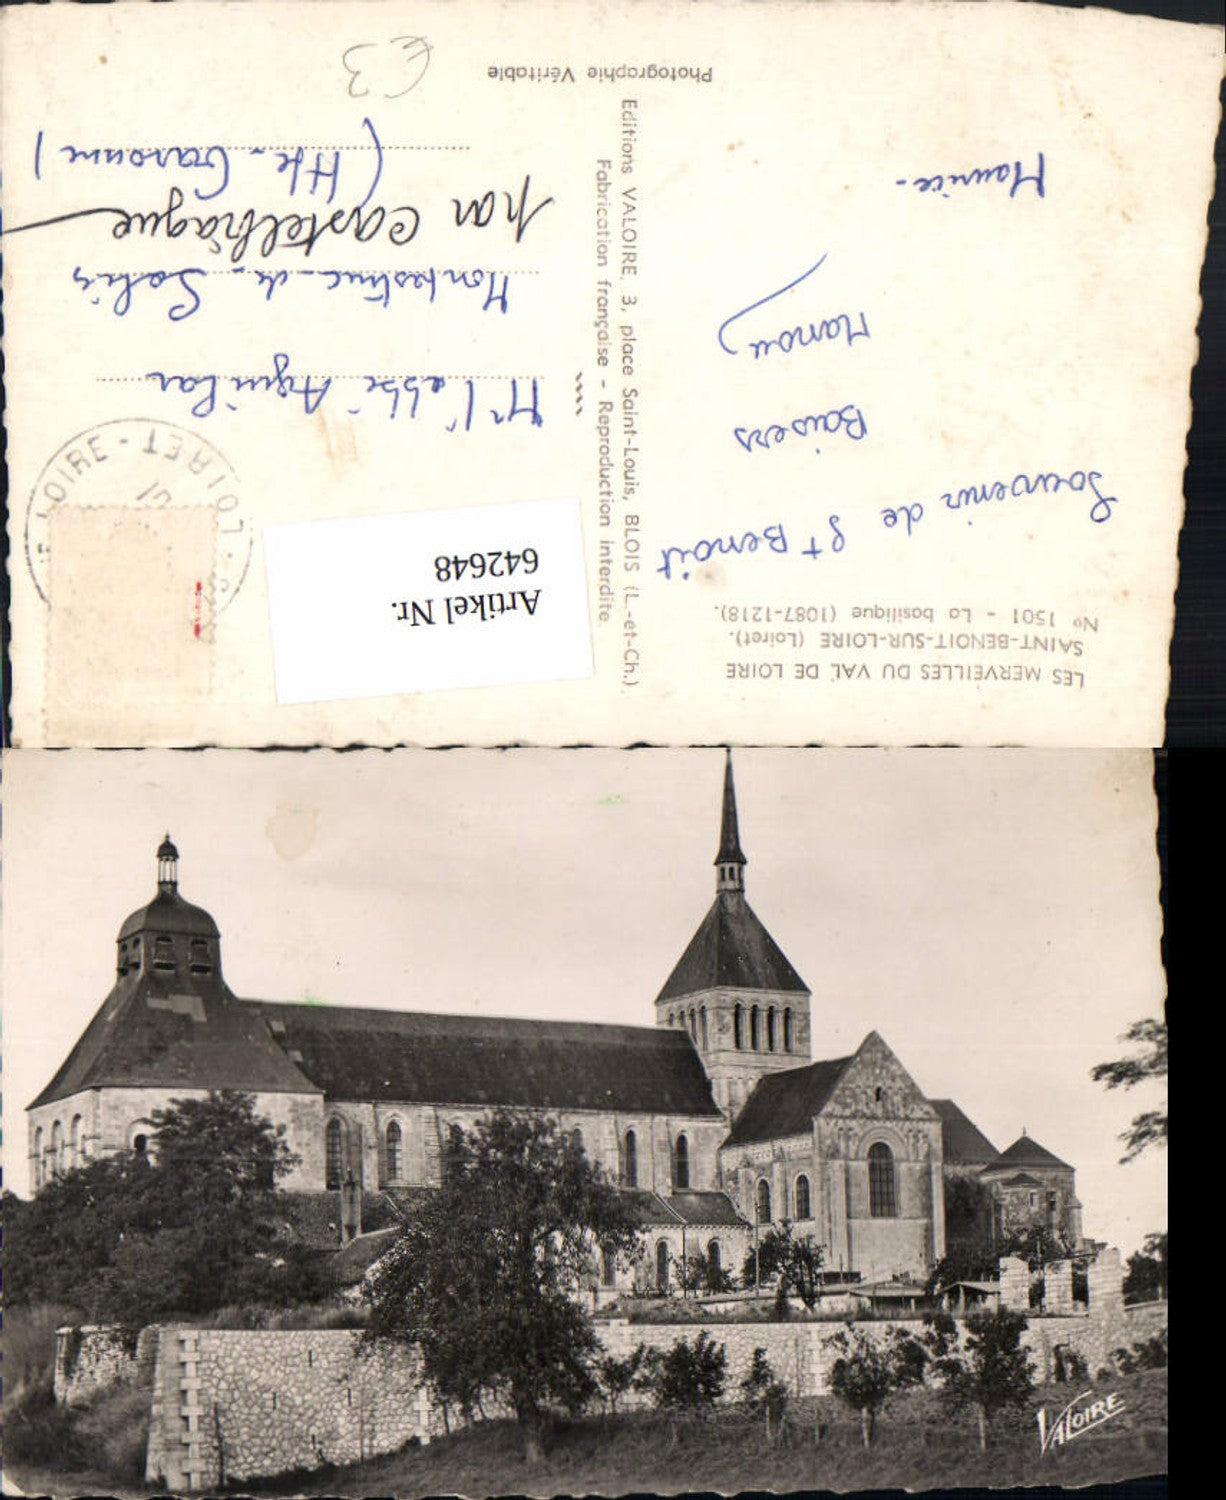 LES MERVEILLES DU VAL DE LOIRE
SAINT-BENOIT-SUR-LOIRE (Loiret).
Nº 1501 - La basilique (1087-1218).
Souvenir de St Benoit
Baisers
Manou
Maurice-
Editions VALOIRE, 3, place Saint-Louis, BLOIS (L.-et-Ch.).
Fabrication française - Reproduction interdite.
Photographie Véritable
Artikel Nr.
642648
LOIRE - LOIRET
Mr l'abbé Aguilar
Montastruc-de-Salies
par Castelbiague
(Hte-Garonne)
€3
VALOIRE